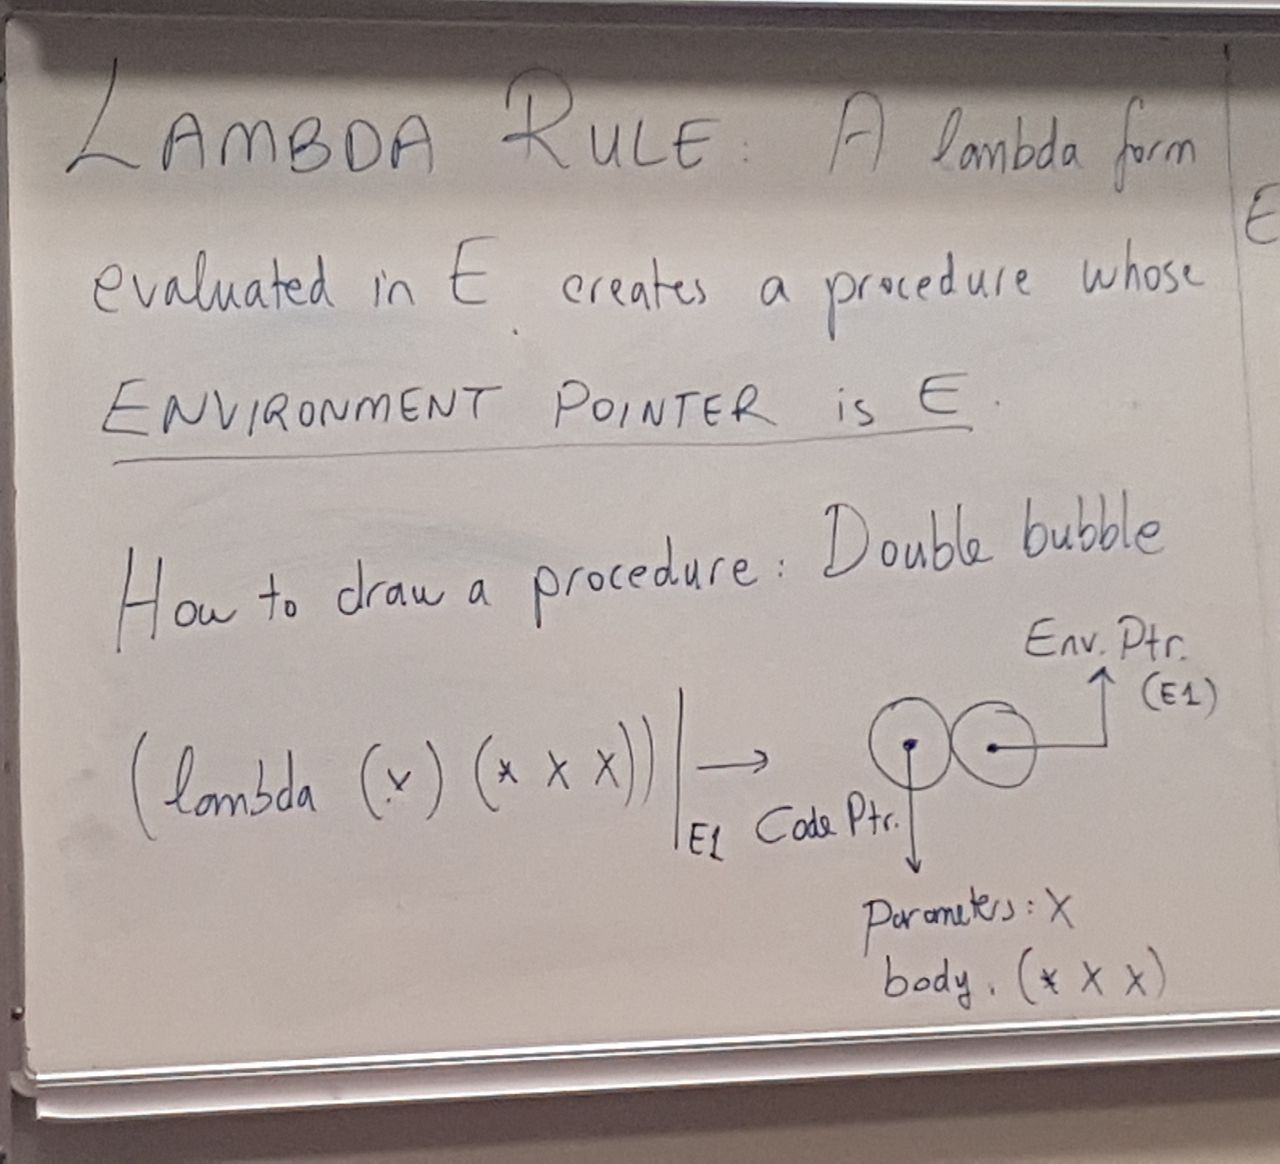 LAMBDA RULE: A lambda form
evaluated in E creates a procedure whose
ENVIRONMENT POINTER is E.
How to draw a procedure: Double bubble
Env. Ptr.
(E1)
(lambda (x) (* x x))|E1 →
Code Ptr.
Parameters: x
body: (* x x)
E